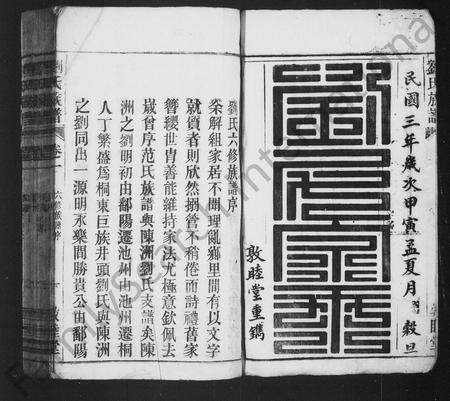 劉氏族譜
民國三年歲次甲寅孟夏月 穀旦
劉氏宗乘
敦睦堂重鐫
劉氏六修族譜序
余解組家居不聞理亂鄉里間有以文字
就質者則欣然搦管不稍倦而詩禮舊家
簪纓世胄善能維持家法尤極意欽佩去
歲曾序范氏族譜與陳洲劉氏支譜矣陳
洲之劉明初由鄱陽遷池州由池州遷桐
人丁繁盛為桐東巨族井頭劉氏與陳洲
之劉同出一源明永樂間勝貴公由鄱陽
劉氏族譜
卷一
六修族譜序
敦睦堂
FamilySearch International